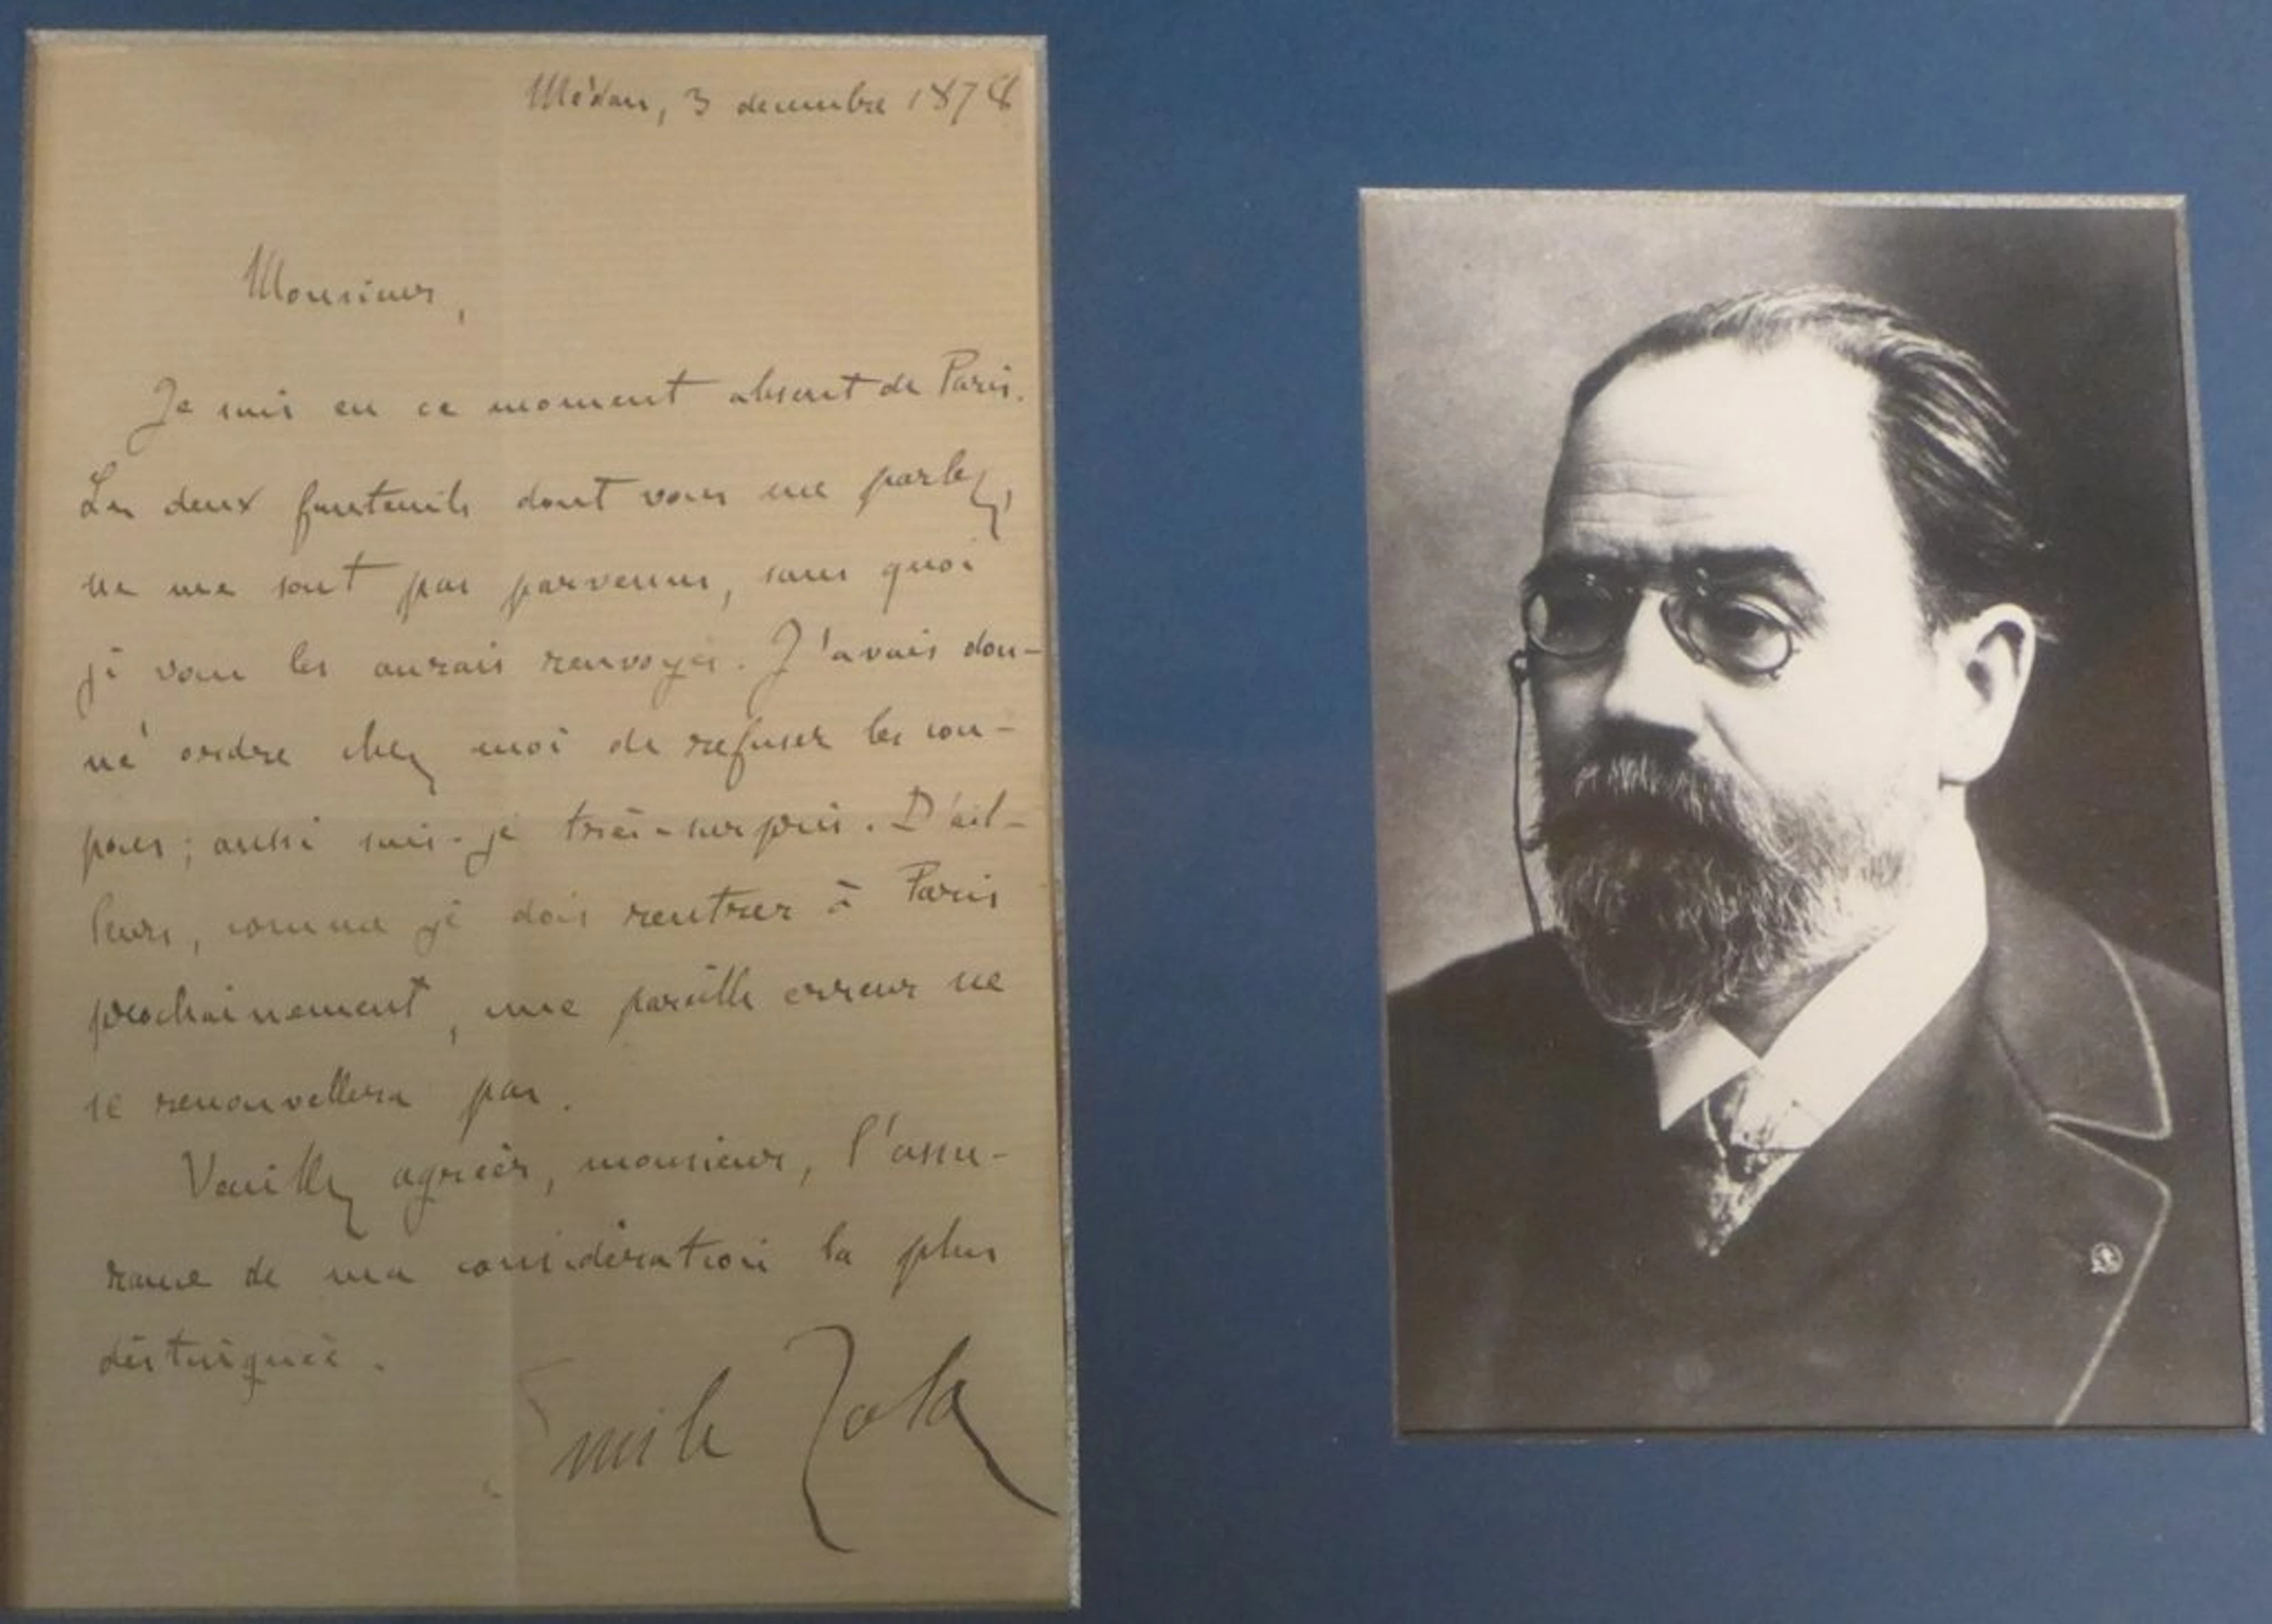 Médan, 3 decembre 1878
Monsieur,
Je suis en ce moment absent de Paris.
Les deux fauteuils dont vous me parlez,
ne me sont pas parvenus, sans quoi
je vous les aurais renvoyés. J'avais don-
né ordre chez moi de refuser les cou-
pons ; aussi suis-je très-surpris. D'ail-
leurs, comme je dois rentrer à Paris
prochainement, une pareille erreur ne
se renouvellera pas.
Veuillez agréer, monsieur, l'assu-
rance de ma considération la plus
distinguée.
Emile Zola